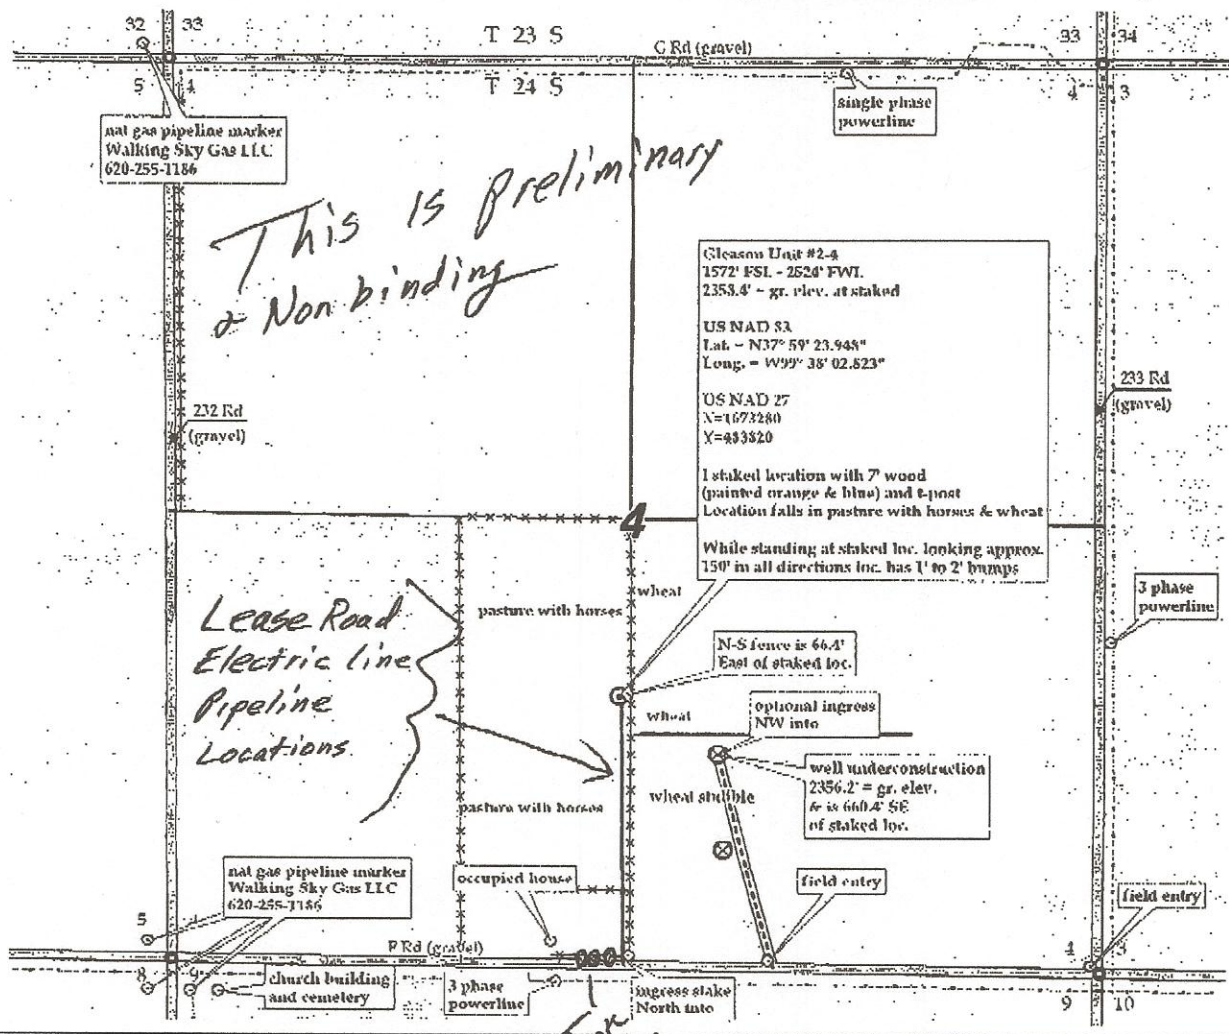 32 33
T 23 S
G Rd (gravel)
33 34
5 4
T 24 S
4 3
single phase
powerline
nat gas pipeline marker
Walking Sky Gas LLC
620-255-1186
This is preliminary
& Non binding
Gleason Unit #2-4
1572' FSL - 2524' FWL
2353.4' = gr. elev. at staked
US NAD 83
Lat. = N37° 59' 23.948"
Long. = W99° 38' 02.823"
US NAD 27
X=1673280
Y=483820
I staked location with 7' wood
(painted orange & blue) and t-post
Location falls in pasture with horses & wheat
While standing at staked loc. looking approx.
150' in all directions loc. has 1' to 2' bumps
232 Rd
(gravel)
233 Rd
(gravel)
4
Lease Road
Electric line
Pipeline
Locations
pasture with horses
wheat
3 phase
powerline
N-S fence is 66.4'
East of staked loc.
wheat
optional ingress
NW into
well underconstruction
2356.2' = gr. elev.
& is 660.4' SE
of staked loc.
wheat stubble
pasture with horses
nat gas pipeline marker
Walking Sky Gas LLC
620-255-1186
occupied house
field entry
field entry
5
F Rd (gravel)
4 3
8 9
church building
and cemetery
3 phase
powerline
ingress stake
North into
9 10